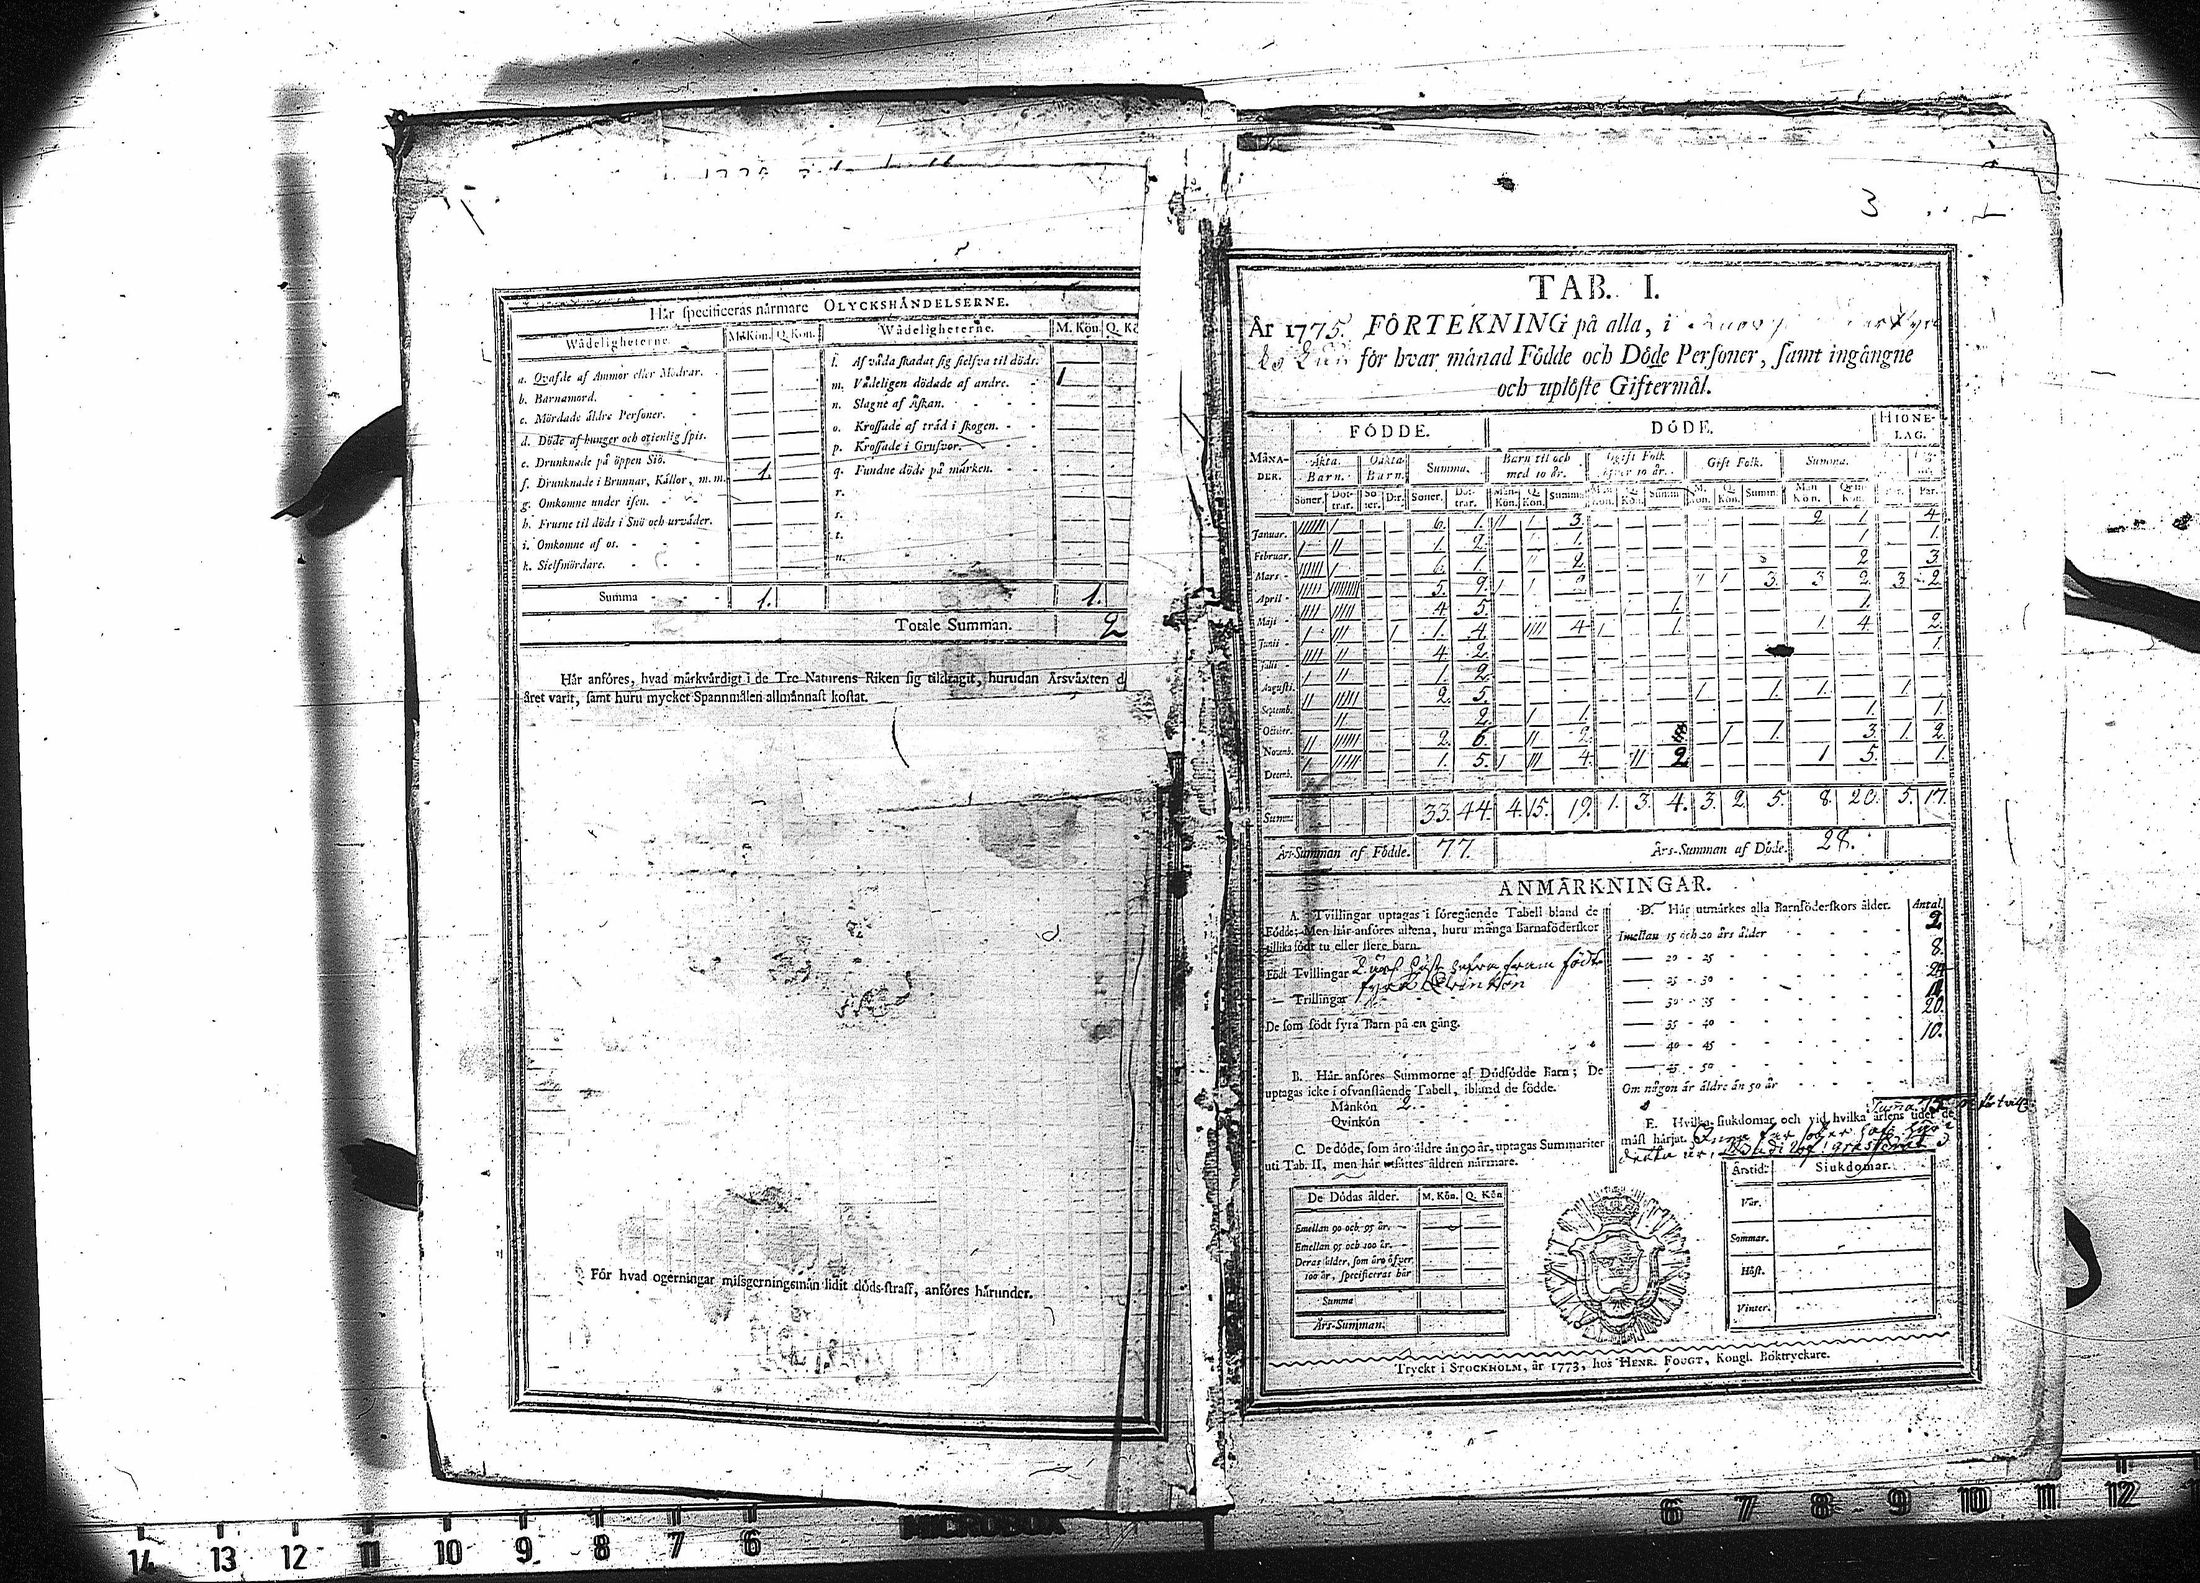 Här specificeras närmare OLYCKSHÄNDELSERNE.
Wådeligheterne. M. Kön. Q. Kön. Wådeligheterne. M. Kön. Q.
a. Qvafde af Ammor eller Mödrar.
b. Barnamord.
c. Mördade äldre Personer.
d. Döde af hunger och otienlig spis.
e. Drunknade på öppen Siö.
f. Drunknade i Brunnar, Källor, m. m. 1.
g. Omkomne under isen.
h. Frusne til döds i Snö och urväder.
i. Omkomne af os.
k. Sielfmördare.
l. Af våda skadat sig sielfva til döds.
m. Vådeligen dödade af andre. 1
n. Slagne af Åskan.
o. Krossade af träd i skogen.
p. Krossade i Grufvor.
q. Fundne döds på marken.
r.
s.
t.
u.
Summa 1. 1.
Totale Summan. 2
Här anföres, hvad märkvärdigt i de Tre Naturens Riken sig tildragit, hurudan Årsväxten
året varit, samt huru mycket Spannmålen allmännast kostat.
För hvad ogerningar missgerningsmän lidit döds-straff, anföres härunder.
3
TAB. I.
År 1775. FÖRTEKNING på alla, i
för hvar månad Födde och Döde Personer, samt ingångne
och uplöste Giftermål.
FÖDDE. DÖDE. HIONE-LAG.
MÅNA-DER. Äkta Barn. Oäkta Barn. Summa. Barn til och med 10 år. Ogift Folk öfver 10 år. Gift Folk. Summa.
Januar. 6. 1. 3. 2 1. 4
Februar. 1. 2. 1. 1. 1.
Mars 6. 1. 2. 2. 3
April 5. 9. 3. 3 2. 3. 2.
Maji 4. 5. 1. 1.
Junii 1. 4. 4. 1. 1. 4. 2.
Julii 4. 2. 1.
Augusti. 1. 2.
Septemb. 2. 5. 1. 1. 1.
October. 2. 1. 1. 1.
Novemb. 2. 6. 2. 1. 3. 1. 2.
Decemb. 1. 5. 4. 2 1 5. 1.
Summa 33. 44. 4. 15. 19. 1. 3. 4. 3. 2. 5. 8. 20. 5. 17.
Års-Summan af Födde. 77. Års-Summan af Döde. 28.
ANMÄRKNINGAR.
A. Tvillingar uptagas i föregående Tabell bland de
Födde; Men här anföres allena, huru många Barnaföderskor
tillika födt tu eller flere barn.
Födt Tvillingar
— Trillingar
De som födt fyra Barn på en gång.
B. Här anföres Summorne af Dödfödde Barn; De
uptagas icke i ofvanstående Tabell, ibland de födde.
Mankön 2.
Qvinkön
C. De döde, som äro äldre än 90 år, uptagas Summariter
uti Tab. II, men här utsättes åldren närmare.
De Dödas ålder. M. Kön. Q. Kön
Emellan 90 och 95 år.
Emellan 95 och 100 år.
Deras ålder, som äro öfver
100 år, specificeras här
Summa
Års-Summan.
D. Här utmärkes alla Barnföderskors ålder. Antal.
Imellan 15 och 20 års ålder 2
— 20 - 25 8.
— 25 - 30 24
— 30 - 35
— 35 - 40 20.
— 40 - 45 10.
— 45 - 50
Om någon är äldre än 50 år
E. Hvilka siukdomar och vid hvilka årsens tider de
mäst härjat.
Årstid. Siukdomar.
Vår.
Sommar.
Höst.
Vinter.
Tryckt i STOCKHOLM, år 1773, hos HENR. FOUGT, Kongl. Boktryckare.
14 13 12 11 10 9 8 7 6
MICROBOX
6 7 8 9 10 11 12